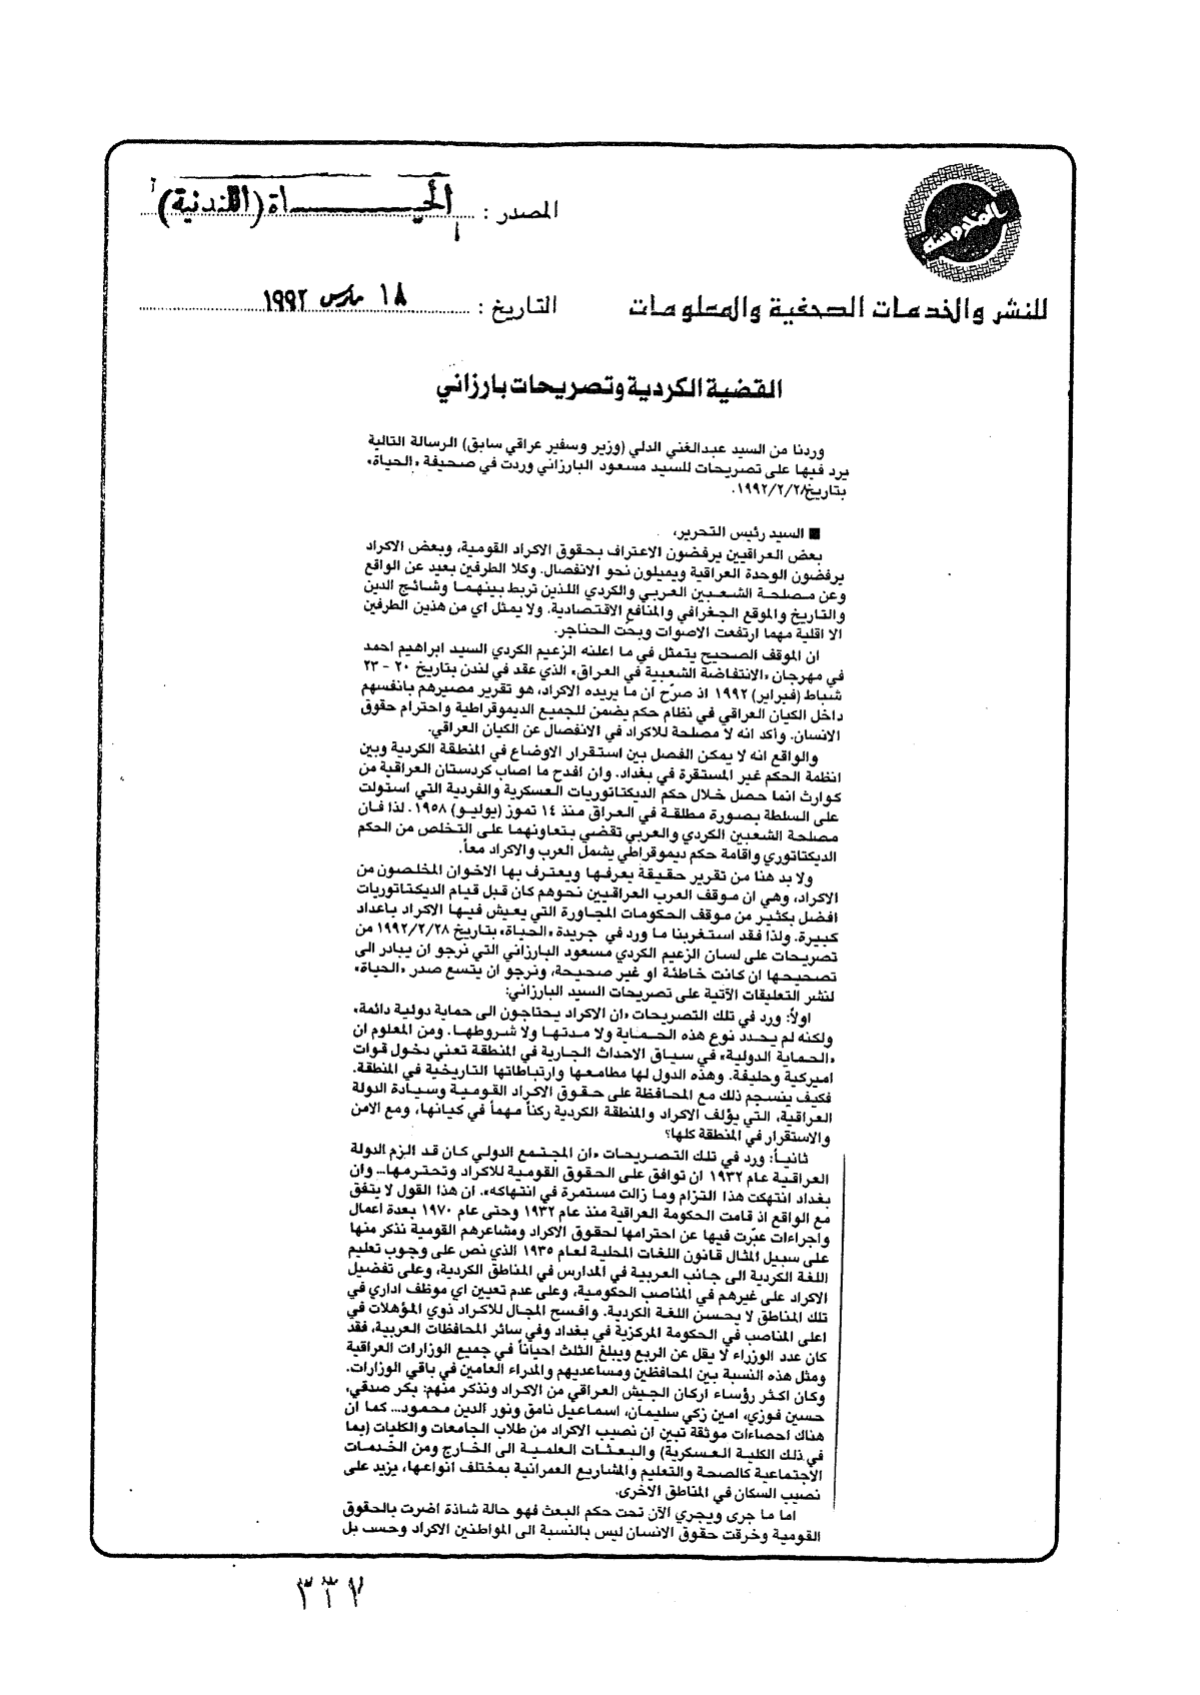 المحروسة
المصدر : الحيـــاة (اللندنية)
للنشر والخدمات الصحفية والمعلومات
التاريخ : ١٨ مارس ١٩٩٢
القضية الكردية وتصريحات بارزاني
وردنا من السيد عبدالغني الدلي (وزير وسفير عراقي سابق) الرسالة التالية
يرد فيها على تصريحات للسيد مسعود البارزاني وردت في صحيفة «الحياة»
بتاريخ ١٩٩٢/٢/٢٨.
■ السيد رئيس التحرير،
بعض العراقيين يرفضون الاعتراف بحقوق الاكراد القومية، وبعض الاكراد
يرفضون الوحدة العراقية ويميلون نحو الانفصال. وكلا الطرفين بعيد عن الواقع
وعن مصلحة الشعبين العربي والكردي اللذين تربط بينهما وشائج الدين
والتاريخ والموقع الجغرافي والمنافع الاقتصادية. ولا يمثل اي من هذين الطرفين
الا اقلية مهما ارتفعت الاصوات وبحّت الحناجر.
ان الموقف الصحيح يتمثل في ما اعلنه الزعيم الكردي السيد ابراهيم احمد
في مهرجان «الانتفاضة الشعبية في العراق» الذي عقد في لندن بتاريخ ٢٠ - ٢٣
شباط (فبراير) ١٩٩٢ اذ صرّح ان ما يريده الاكراد، هو تقرير مصيرهم بانفسهم
داخل الكيان العراقي في نظام حكم يضمن للجميع الديموقراطية واحترام حقوق
الانسان. وأكد انه لا مصلحة للاكراد في الانفصال عن الكيان العراقي.
والواقع انه لا يمكن الفصل بين استقرار الاوضاع في المنطقة الكردية وبين
انظمة الحكم غير المستقرة في بغداد. وان افدح ما اصاب كردستان العراقية من
كوارث انما حصل خلال حكم الديكتاتوريات العسكرية والفردية التي استولت
على السلطة بصورة مطلقة في العراق منذ ١٤ تموز (يوليو) ١٩٥٨. لذا فان
مصلحة الشعبين الكردي والعربي تقضي بتعاونهما على التخلص من الحكم
الديكتاتوري واقامة حكم ديموقراطي يشمل العرب والاكراد معاً.
ولا بد هنا من تقرير حقيقة يعرفها ويعترف بها الاخوان المخلصون من
الاكراد، وهي ان موقف العرب العراقيين نحوهم كان قبل قيام الديكتاتوريات
افضل بكثير من موقف الحكومات المجاورة التي يعيش فيها الاكراد باعداد
كبيرة. ولذا فقد استغربنا ما ورد في جريدة «الحياة» بتاريخ ١٩٩٢/٢/٢٨ من
تصريحات على لسان الزعيم الكردي مسعود البارزاني التي نرجو ان يبادر الى
تصحيحها ان كانت خاطئة او غير صحيحة، ونرجو ان يتسع صدر «الحياة»
لنشر التعليقات الآتية على تصريحات السيد البارزاني:
اولاً: ورد في تلك التصريحات «ان الاكراد يحتاجون الى حماية دولية دائمة»
ولكنه لم يحدد نوع هذه الحماية ولا مدتها ولا شروطها. ومن المعلوم ان
«الحماية الدولية» في سياق الاحداث الجارية في المنطقة تعني دخول قوات
اميركية وحليفة. وهذه الدول لها مطامعها وارتباطاتها التاريخية في المنطقة.
فكيف ينسجم ذلك مع المحافظة على حقوق الاكراد القومية وسيادة الدولة
العراقية، التي يؤلف الاكراد والمنطقة الكردية ركناً مهماً في كيانها، ومع الامن
والاستقرار في المنطقة كلها؟
ثانياً: ورد في تلك التصريحات «ان المجتمع الدولي كان قد الزم الدولة
العراقية عام ١٩٣٢ ان توافق على الحقوق القومية للاكراد وتحترمها... وان
بغداد انتهكت هذا التزام وما زالت مستمرة في انتهاكه». ان هذا القول لا يتفق
مع الواقع اذ قامت الحكومة العراقية منذ عام ١٩٣٢ وحتى عام ١٩٧٠ بعدة اعمال
واجراءات عبّرت فيها عن احترامها لحقوق الاكراد ومشاعرهم القومية نذكر منها
على سبيل المثال قانون اللغات المحلية لعام ١٩٣٥ الذي نص على وجوب تعليم
اللغة الكردية الى جانب العربية في المدارس في المناطق الكردية، وعلى تفضيل
الاكراد على غيرهم في المناصب الحكومية، وعلى عدم تعيين اي موظف اداري في
تلك المناطق لا يحسن اللغة الكردية. وافسح المجال للاكراد ذوي المؤهلات في
اعلى المناصب في الحكومة المركزية في بغداد وفي سائر المحافظات العربية، فقد
كان عدد الوزراء لا يقل عن الربع ويبلغ الثلث احياناً في جميع الوزارات العراقية
ومثل هذه النسبة بين المحافظين ومساعديهم والمدراء العامين في باقي الوزارات.
وكان اكثر رؤساء اركان الجيش العراقي من الاكراد ونذكر منهم: بكر صدقي،
حسين فوزي، امين زكي سليمان، اسماعيل نامق ونور الدين محمود... كما ان
هناك احصاءات موثقة تبين ان نصيب الاكراد من طلاب الجامعات والكليات (بما
في ذلك الكلية العسكرية) والبعثات العلمية الى الخارج ومن الخدمات
الاجتماعية كالصحة والتعليم والمشاريع العمرانية بمختلف انواعها، يزيد على
نصيب السكان في المناطق الاخرى.
اما ما جرى ويجري الآن تحت حكم البعث فهو حالة شاذة اضرت بالحقوق
القومية وخرقت حقوق الانسان ليس بالنسبة الى المواطنين الاكراد وحسب بل
٣٣٧